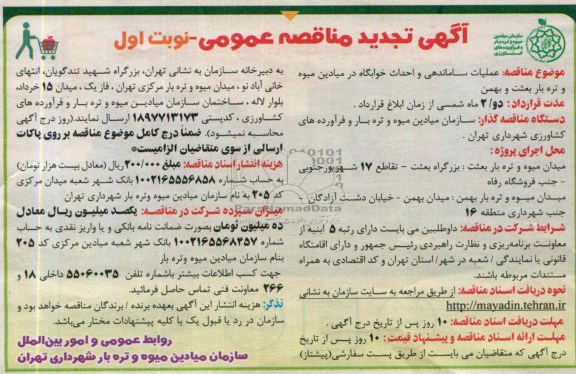 سازمان میادین
میوه و تره بار
و فرآورده های
کشاورزی
آگهی تجدید مناقصه عمومی-نوبت اول
موضوع مناقصه: عملیات ساماندهی و احداث خوابگاه در میادین میوه
و تره بار بعثت و بهمن
مدت قرارداد : دو/ ۲ ماه شمسی از زمان ابلاغ قرارداد .
دستگاه مناقصه گذار: سازمان میادین میوه و تره بار و فرآورده های
کشاورزی شهرداری تهران .
محل اجرای پروژه :
میدان میوه و تره بار بعثت : بزرگراه بعثت – تقاطع ۱۷ شهریورجنوبی
- جنب فروشگاه رفاه
میدان میوه و تره بار بهمن : میدان بهمن – خیابان دشت آزادگان –
جنب شهرداری منطقه ۱۶
شرایط شرکت در مناقصه: داوطلبین می بایست دارای رتبه ۵ ابنیه از
معاونت برنامه‌ریزی و نظارت راهبردی رئیس جمهور و دارای اقامتگاه
قانونی یا نمایندگی / شعبه در شهر/ استان تهران و کد اقتصادی به همراه
مستندات مربوطه باشند.
نحوه دریافت اسناد مناقصه: از طریق مراجعه به سایت سازمان به نشانی
http://mayadin.tehran.ir
مهلت دریافت اسناد مناقصه: ۱۰ روز پس از تاریخ درج آگهی .
مهلت ارائه اسناد مناقصه و پیشنهاد قیمت: ۱۰ روز پس از تاریخ
درج آگهی که متقاضیان می بایست از طریق پست سفارشی(پیشتاز)
به دبیرخانه سازمان به نشانی تهران، بزرگراه شهید تندگویان، انتهای
خانی آباد نو ، میدان میوه و تره بار مرکزی تهران ، فاز یک ، میدان ۱۵ خرداد،
بلوار لاله ، ساختمان سازمان میادین میوه و تره بار و فرآورده های
کشاورزی ، کدپستی ۱۸۹۷۷۱۳۱۷۳ ارسال نمایند.(روز درج آگهی
محاسبه نمیشود). ضمناً درج کامل موضوع مناقصه بر روی پاکات
ارسالی از سوی متقاضیان الزامیست*
هزینه انتشار اسناد مناقصه: مبلغ ۲۰۰/۰۰۰ ریال (معادل بیست هزار تومان)
به حساب شماره ۱۰۰۲۱۶۵۵۵۶۸۵۸ بانک شهر شعبه میدان مرکزی
کد ۲۰۵ به نام سازمان میادین میوه وتره بار شهرداری تهران
میزان سپرده شرکت در مناقصه: یکصد میلیون ریال معادل
ده میلیون تومان بصورت ضمانت نامه بانکی و یا واریز نقدی به حساب
شماره ۱۰۰۲۱۶۵۵۶۸۴۵۷ بانک شهر شعبه میادین مرکزی کد ۲۰۵
بنام سازمان میادین میوه وتره بار
جهت کسب اطلاعات بیشتر باشماره تلفن ۵۵۰۶۰۰۳۵ داخلی ۱۸ و
۲۶۶ معاونت فنی تماس حاصل فرمائید.
تذکر: هزینه انتشار این آگهی بعهده برنده / برندگان مناقصه خواهد بود و
سازمان در رد یا قبول یک یا کلیه پیشنهادات مختار می‌باشد.
روابط عمومی و امور بین‌الملل
سازمان میادین میوه و تره بار شهرداری تهران